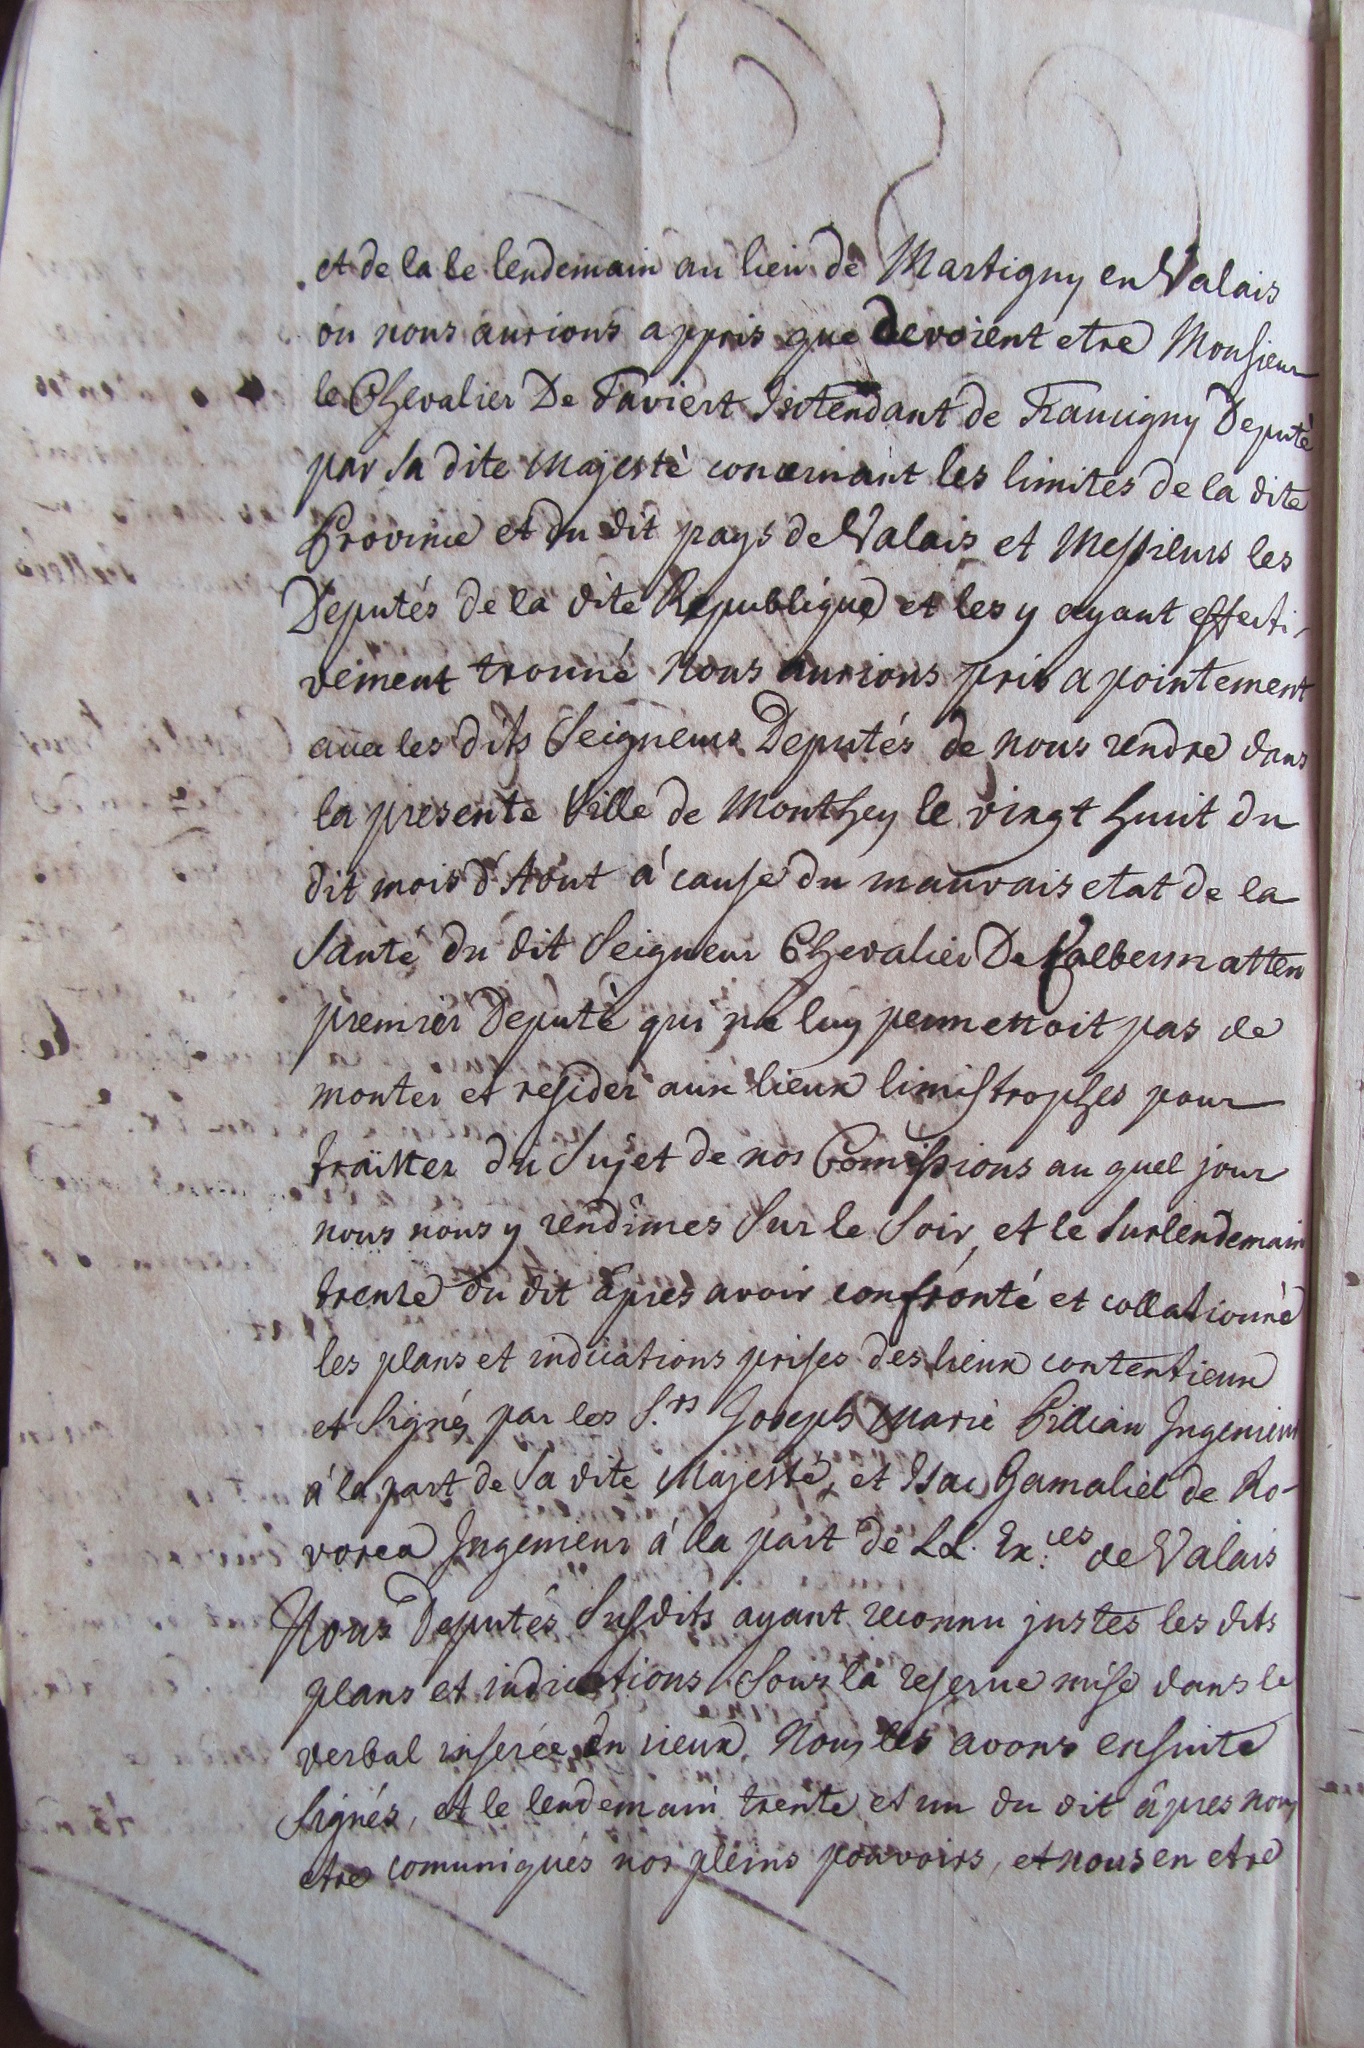 et de la le lendemain au lieu de Martigny en Valais
ou nous aurions appris que devoient etre Monsieur
le Chevalier De Faviert Intendant de Faucigny Deputé
par Sa dite Majesté concernant les limites de la dite
Province et du dit pays de Valais et Messieurs les
Deputés de la dite Republique et les y ayant effecti-
vement trouné Nous aurions pris apointement
auec les dits Seigneurs Deputés de nous rendre dans
la presente Ville de Monthey le vingt huit du
dit mois d'Aout á cause du mauvais etat de la
Santé du dit Seigneur Chevalier De Kalbermatten
premier Deputé qui ne luy permettoit pas de
monter et resider aux lieux limistrophes pour
traitter du Sujet de nos Comissions au quel jour
nous nous y rendimes Sur le Soir, et le Surlendemain
trente du dit âpres avoir confronté et collationné
les plans et indications prises des lieux contentieux
et Signés par les S.rs Joseph Marie Ingenieur
á la part de Sa dite Majesté, et Isac Gamaliel de Ro-
vorea Ingenieur á la part de LL. Ex.ces de Valais
Nous Deputés Susdits ayant reconnu justes les dits
plans et indications Sous la reserue mise dans le
verbal inserée en iceux, Nous les avons ensuite
Signés, et le lendemain trente et un du dit âpres nous
etre comuniqués nos pleins pouvoirs, et nous en etre